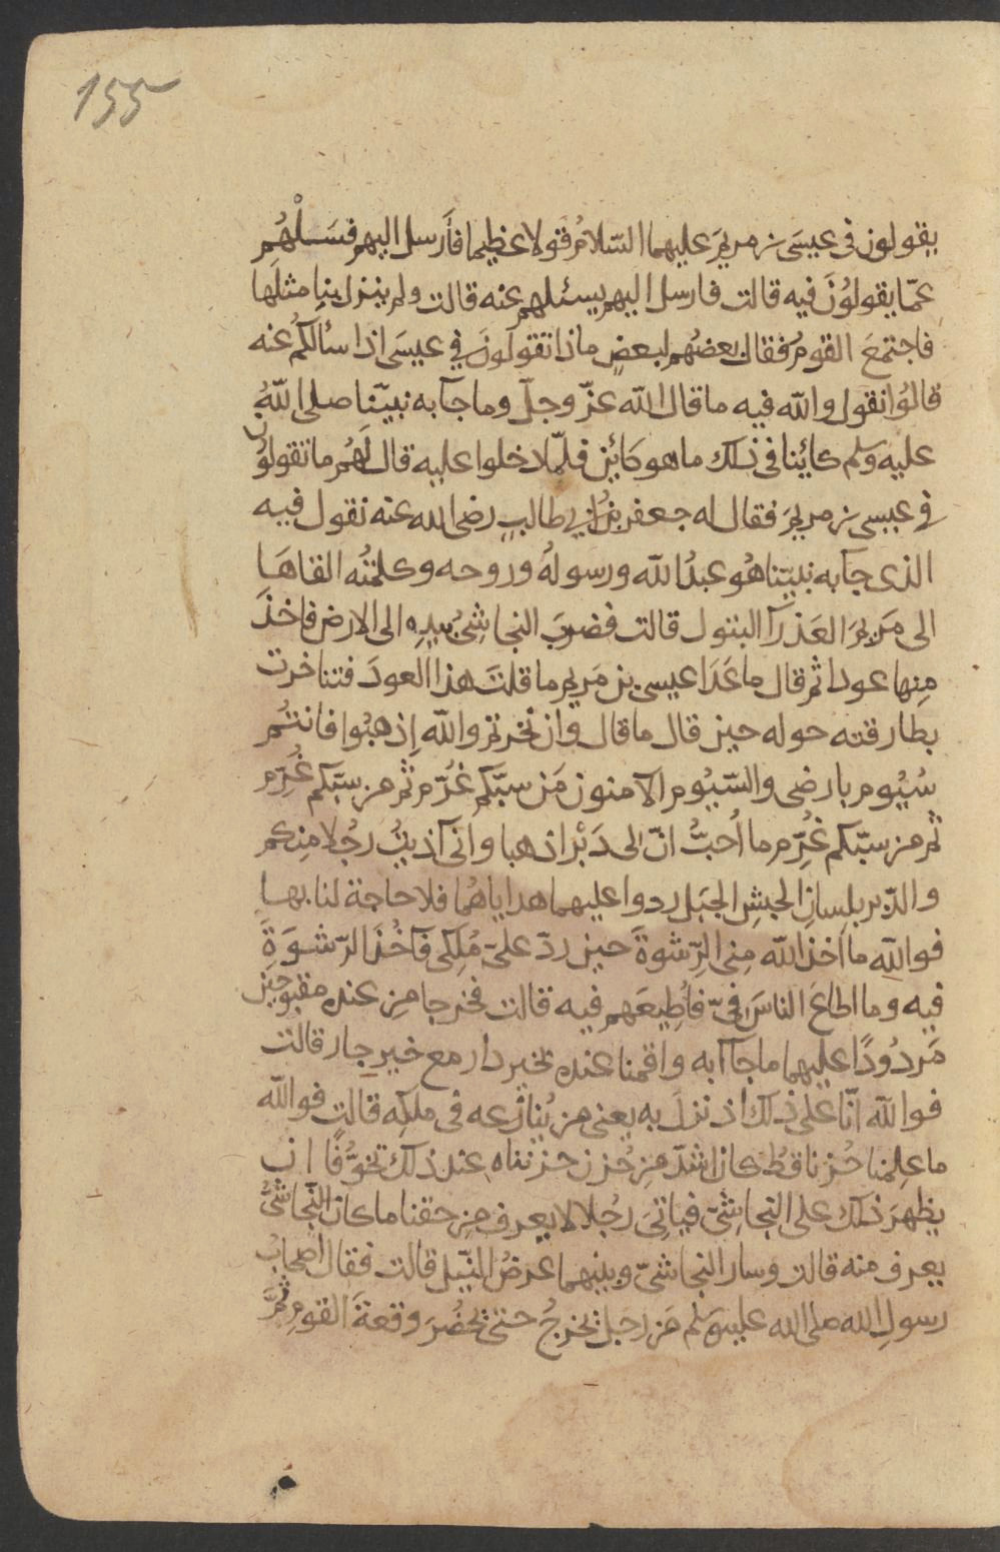 155
يقولون في عيسَى بن مريمَ عليهما السّلامُ قولا عظيما فأَرسل اليهم فسَلْهُم
عمّا يقولوُنَ فيه قالت فارسل اليهم يسئلهم عنه قالت ولم ينزل بنا مثلَها
فاجتمعَ القومُ فقال بعضهُم لبعضٍ ماذا تقولونَ في عيسَى اذا سألكُم عنه
قالوُا نقول والله فيه ما قال الله عزّ وجلّ وما جآ به نبيّنا صلى اللهُ
عليه وسلم كائِنا في ذلك ما هو كَائِن فلمّا دخلوا عليه قال لَهُم ما تقولوُن
في عيسى بن مريمَ فقال له جعفر بنُ ابي طالبٍ رضى الله عنه نقول فيه
الذى جآ به نبيّنا هُو عبدُ الله ورسولُهُ وروحه وكلمتُه القاهَا
الى مَريمَ العَذرآ البتول قالت فضربَ النجاشِىُّ بيدِه الى الارض فاخذَ
مِنها عودا ثم قال ما عَدَا عيسى بن مَريم ما قلتَ هذا العودَ فتناخرت
بطارقته حوله حين قال ما قال وان نخرتم والله اِذهبُوا فانتُم
سُيُوم بارضى والسّيُوم الآمنون مَن سبَّكم غُرّم ثم من سبّكم غُرّم
ثم من سبّكم غُرّم ما اُحبُّ انّ لى دَبْرا ذهبا وانى آذيتُ رجُلا منِكم
والدّبر بلِسانِ الحبشِ الجبَل ردوا عليهما هداياهُما فلا حاجة لنا بها
فوالله ما اخذ الله مِنى الرِّشوةَ حين ردّ علىّ مُلِكى فآخُذَ الرّشوَةَ
فيه وما اطاعَ الناسَ فىّ فأُطِيعَهم فيه قالت فخرجا مِن عنده مقبوحين
مَردُودًا عليهما ما جآا به واقمنا عنده بخير دار مع خير جار قالت
فوالله انّا على ذلك اذ نزلَ به يعنى من يُنازعه فى ملكِه قالت فوالله
ما علِمنا حُزنا قطُ كان اشدّ مِن حُزن حزنّاه عِند ذلك تخوّفًا ان
يظهرَ ذلك على النجاشِىّ فياتِىَ رجُلا لا يعرف مِن حقنا ما كان النّجاشىُّ
يعرف منه قالت وسار النجاشىّ وبينهما عرضُ النّيل قالت فقال اصحابُ
رسولِ الله صلى الله عليه وسلم مَن رجل يخرجُ حتى يحضُرَ وقعةَ القومِ ثمَّ